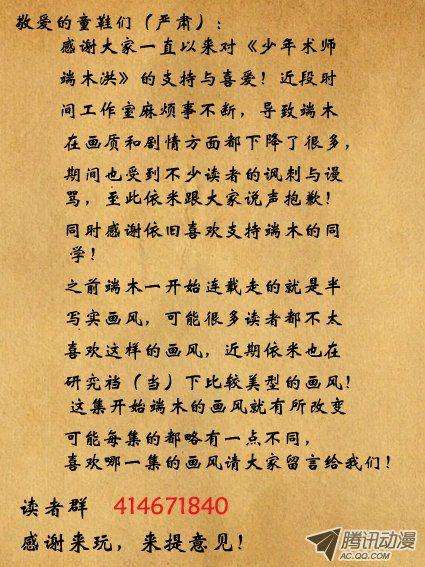 敬爱的童鞋们（严肃）：
感谢大家一直以来对《少年术师
端木洪》的支持与喜爱！近段时
间工作室麻烦事不断，导致端木
在画质和剧情方面都下降了很多，
期间也受到不少读者的讽刺与谩
骂，至此依米跟大家说声抱歉！
同时感谢依旧喜欢支持端木的同
学！
之前端木一开始连载走的就是半
写实画风，可能很多读者都不太
喜欢这样的画风，近期依米也在
研究裆（当）下比较美型的画风！
这集开始端木的画风就有所改变
可能每集的都略有一点不同，
喜欢哪一集的画风请大家留言给我们！
读者群 414671840
感谢来玩，来提意见！
腾讯动漫
AC.QQ.COM